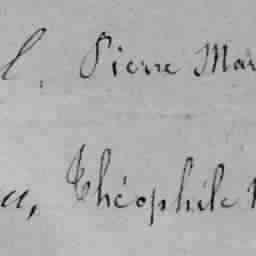 l. Pierre Mar
u, Théophile